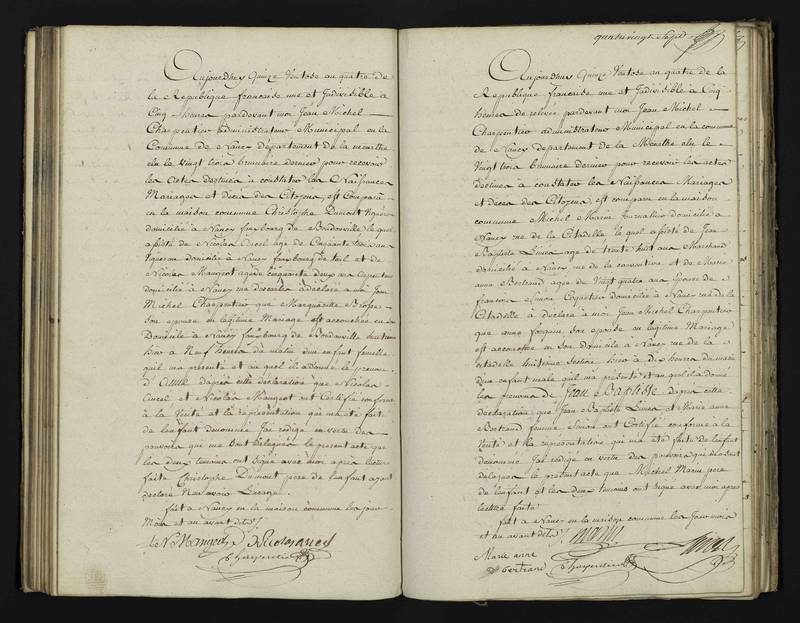 Aujourdhuy Quinze Ventose an quatre de
la Republique française une et Indivisible à
Cinq heures pardevant moi Jean Michel
Charpentier administrateur Municipal en la
Commune de Nancy département de la meurthe
élu le Vingt trois brumaire dernier pour recevoir
les Actes destinés à constater les Naissances
Mariages et décès des Citoyens, est Comparû
en la maison commune Christophe Dumont Vigneron
domicilié à Nancy fauxbourg de Boudonville lequel
assisté de Nicolas age de Cinquante trois ans
Vigneron domicilié à Nancy fauxbourg de et de
Nicolas Mangeot agé de cinquante deux ans
domicilié à Nancy rue à déclaré a moi Jean
Michel Charpentier que Marguerite
son epouse en légitime Mariage est accouchée en son
Domicile à Nancy fauxbourg de Boudonville
hier à Neuf heures du matin d'un enfant femelle
quil ma présenté et au quel il a donné le prenom
d'Anne dapres cette déclaration que Nicolas
et Nicolas Mangeot ont Certifié conforme
à la Vérité et la représentation qui ma été fait
de l'enfant denommé Jai rédigé en vertu des
pouvoirs qui me sont délégués le present acte que
les deux temoins ont signé avec moi après lecture
faite Christophe Dumont pere de l'enfant ayant
declaré Navoir Lusage.
fait à Nancy en la maison commune les jour
Mois et an avant dits
Charpentier
quatrevingt
Aujourdhuy Quinze Ventose an quatre de la
Republique française une et Indivisible à Cinq
heures de relevée pardevant moi Jean Michel
Charpentier administrateur Municipal en la commune
de Nancy departement de la Meurthe élu le
Vingt trois brumaire dernier pour recevoir les actes
destinés à constater les Naissances Mariages
et décès des Citoyens, est comparu en la maison
commune Michel Marin Journalier domicilié à
Nancy rue de la Citadelle le quel assisté de Jean
Baptiste age de trente huit ans Marchand
domicilié à Nancy rue de la convention et de Marie
anne Bertrand agée de Vingt quatre ans Epouse de
françois Simon domicilié à Nancy rue de la
Citadelle à déclaré à moi Jean Michel Charpentier
que anne son epouse en legitime Mariage
est accouchée en son Domicile à Nancy rue de la
citadelle huitieme section hier à dix heures du matin
d'un enfant male quil ma présenté et au quel il a donné
les prenoms de Jean Baptiste dapres cette
déclaration que Jean Baptiste et Marie anne
Bertrand femme Simon ont Certifié conforme à la
Vérité et la représentation qui ma été faite de lenfant
denommé Jai rédigé en vertu des pouvoirs qui me sont
délégués le présent acte que Michel Marin pere
de l'enfant et les deux temoins ont signé avec moi apres
lecture faite
fait à Nancy en la maison commune les Jour mois
et an avant dits
Marie anne
Bertrand Charpentier